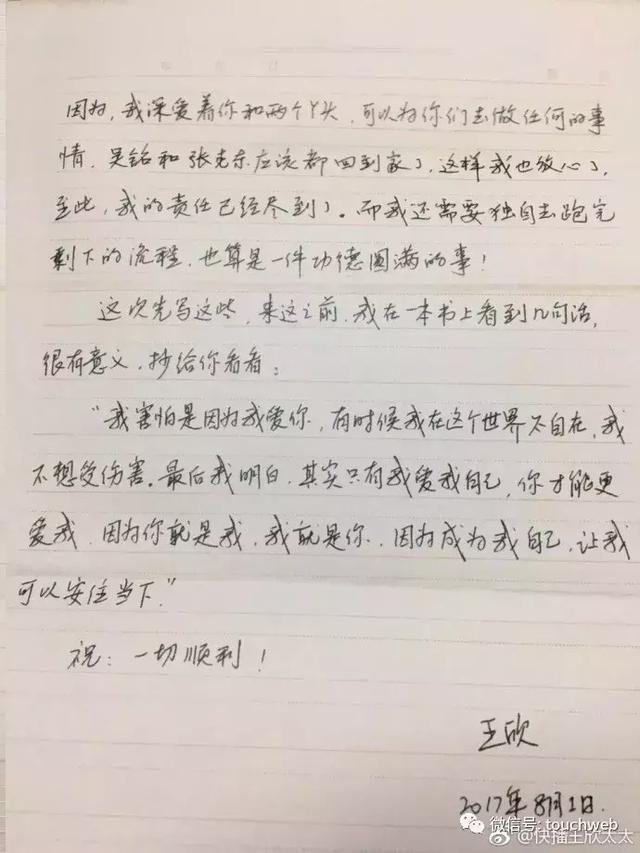 因为，我深爱着你和两个丫头，可以为你们去做任何的事
情，吴铭和张克东应该都回到家了，这样我也放心了，
至此，我的责任已经尽到了。而我还需要独自去跑完
剩下的流程，也算是一件功德圆满的事！
这次先写这些，来这之前，我在一本书上看到几句话，
很有意义，抄给你看看：
“我害怕是因为我爱你，有时候我在这个世界不自在，我
不想受伤害。最后我明白，其实只有我爱我自己，你才能更
爱我，因为你就是我，我就是你，因为成为我自己，让我
可以安住当下。”
祝：一切顺利！
王欣
2017年8月1日.
微信号: touchweb
@快播王欣太太